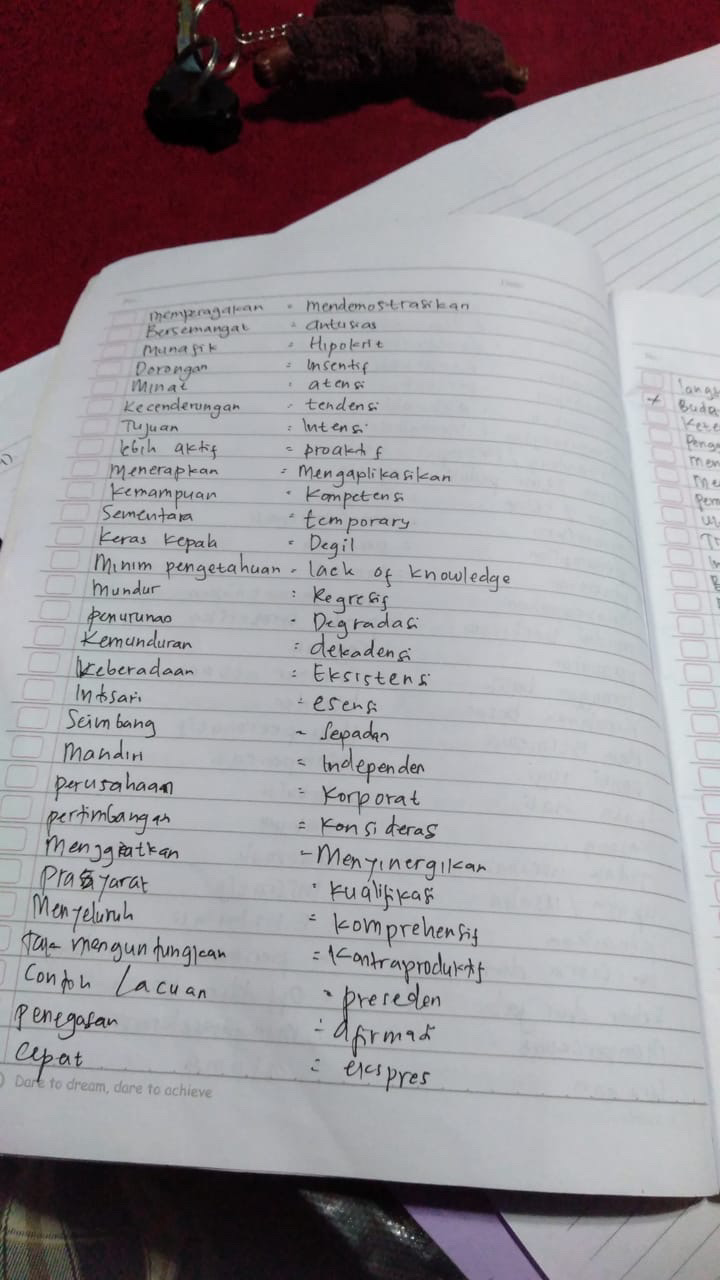 memperagakan = Mendemostrasikan
Bersemangat = antusias
Munafik = Hipokrit
Dorongan = Insentif
Minat : atensi
Kecenderungan : tendensi
Tujuan = Intensi
lebih aktif = proaktif
Menerapkan = Mengaplikasikan
Kemampuan = Kompetensi
Sementara = temporary
Keras Kepala = Degil
Minim pengetahuan = lack of knowledge
Mundur : Regresif
penurunan = Degradasi
Kemunduran = dekadensi
Keberadaan : Eksistensi
Intisari = esensi
Seimbang = Sepadan
Mandiri = Independen
perusahaan = Korporat
pertimbangan = Konsideras
Menggiatkan - Menyinergikan
Prasyarat : kualifikasi
Menyeluruh = komprehensif
tak menguntungkan = Kontraproduktif
Contoh / acuan = preseden
penegasan = afirmasi
Cepat = ekspres
Dare to dream, dare to achieve
No.
langs
Buda
Kete
Peng
men
me
pem